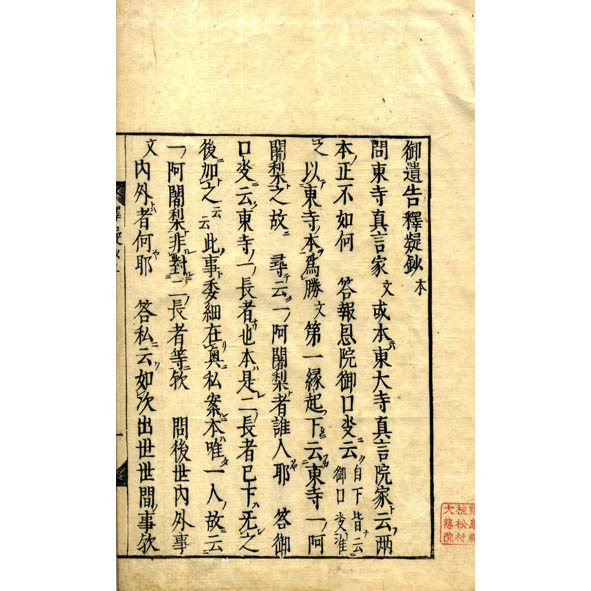 御遺告釋疑鈔本
問東寺真言家文或本東大寺真言院家云兩
本正不如何 答報恩院御口㳒云自下皆云御口㳒准
之以東寺本為勝文第一縁起下云東寺一阿
闍梨之故 尋云一阿闍梨者誰人耶 答御
口㳒云東寺一長者也本是二長者已下无之
後加之云云此事委細在奥私案本唯一人故云
一阿闍梨非對二長者等欤 問後世内外事
文内外者何耶 答私云如次出世世間事欤